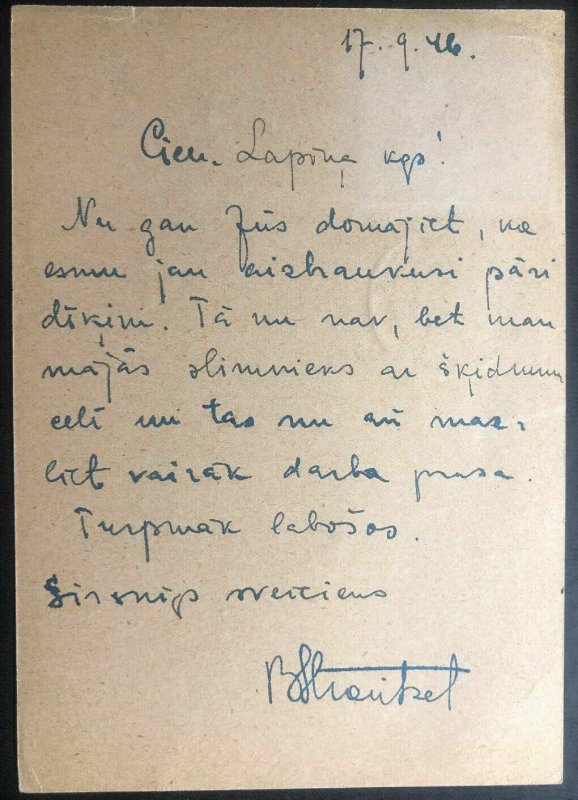 17. 9. 46.
Cien. Lapiņa kgs!
Nu gan Jūs domājiet, ka
esmu jau aizbraukusi pāri
dīķim. Tā nu nav, bet man
mājās slimnieks ar šķidrumu
celī un tas nu arī maz-
liet vairāk darba prasa.
Turpmāk labošos.
Sirsnīgs sveiciens